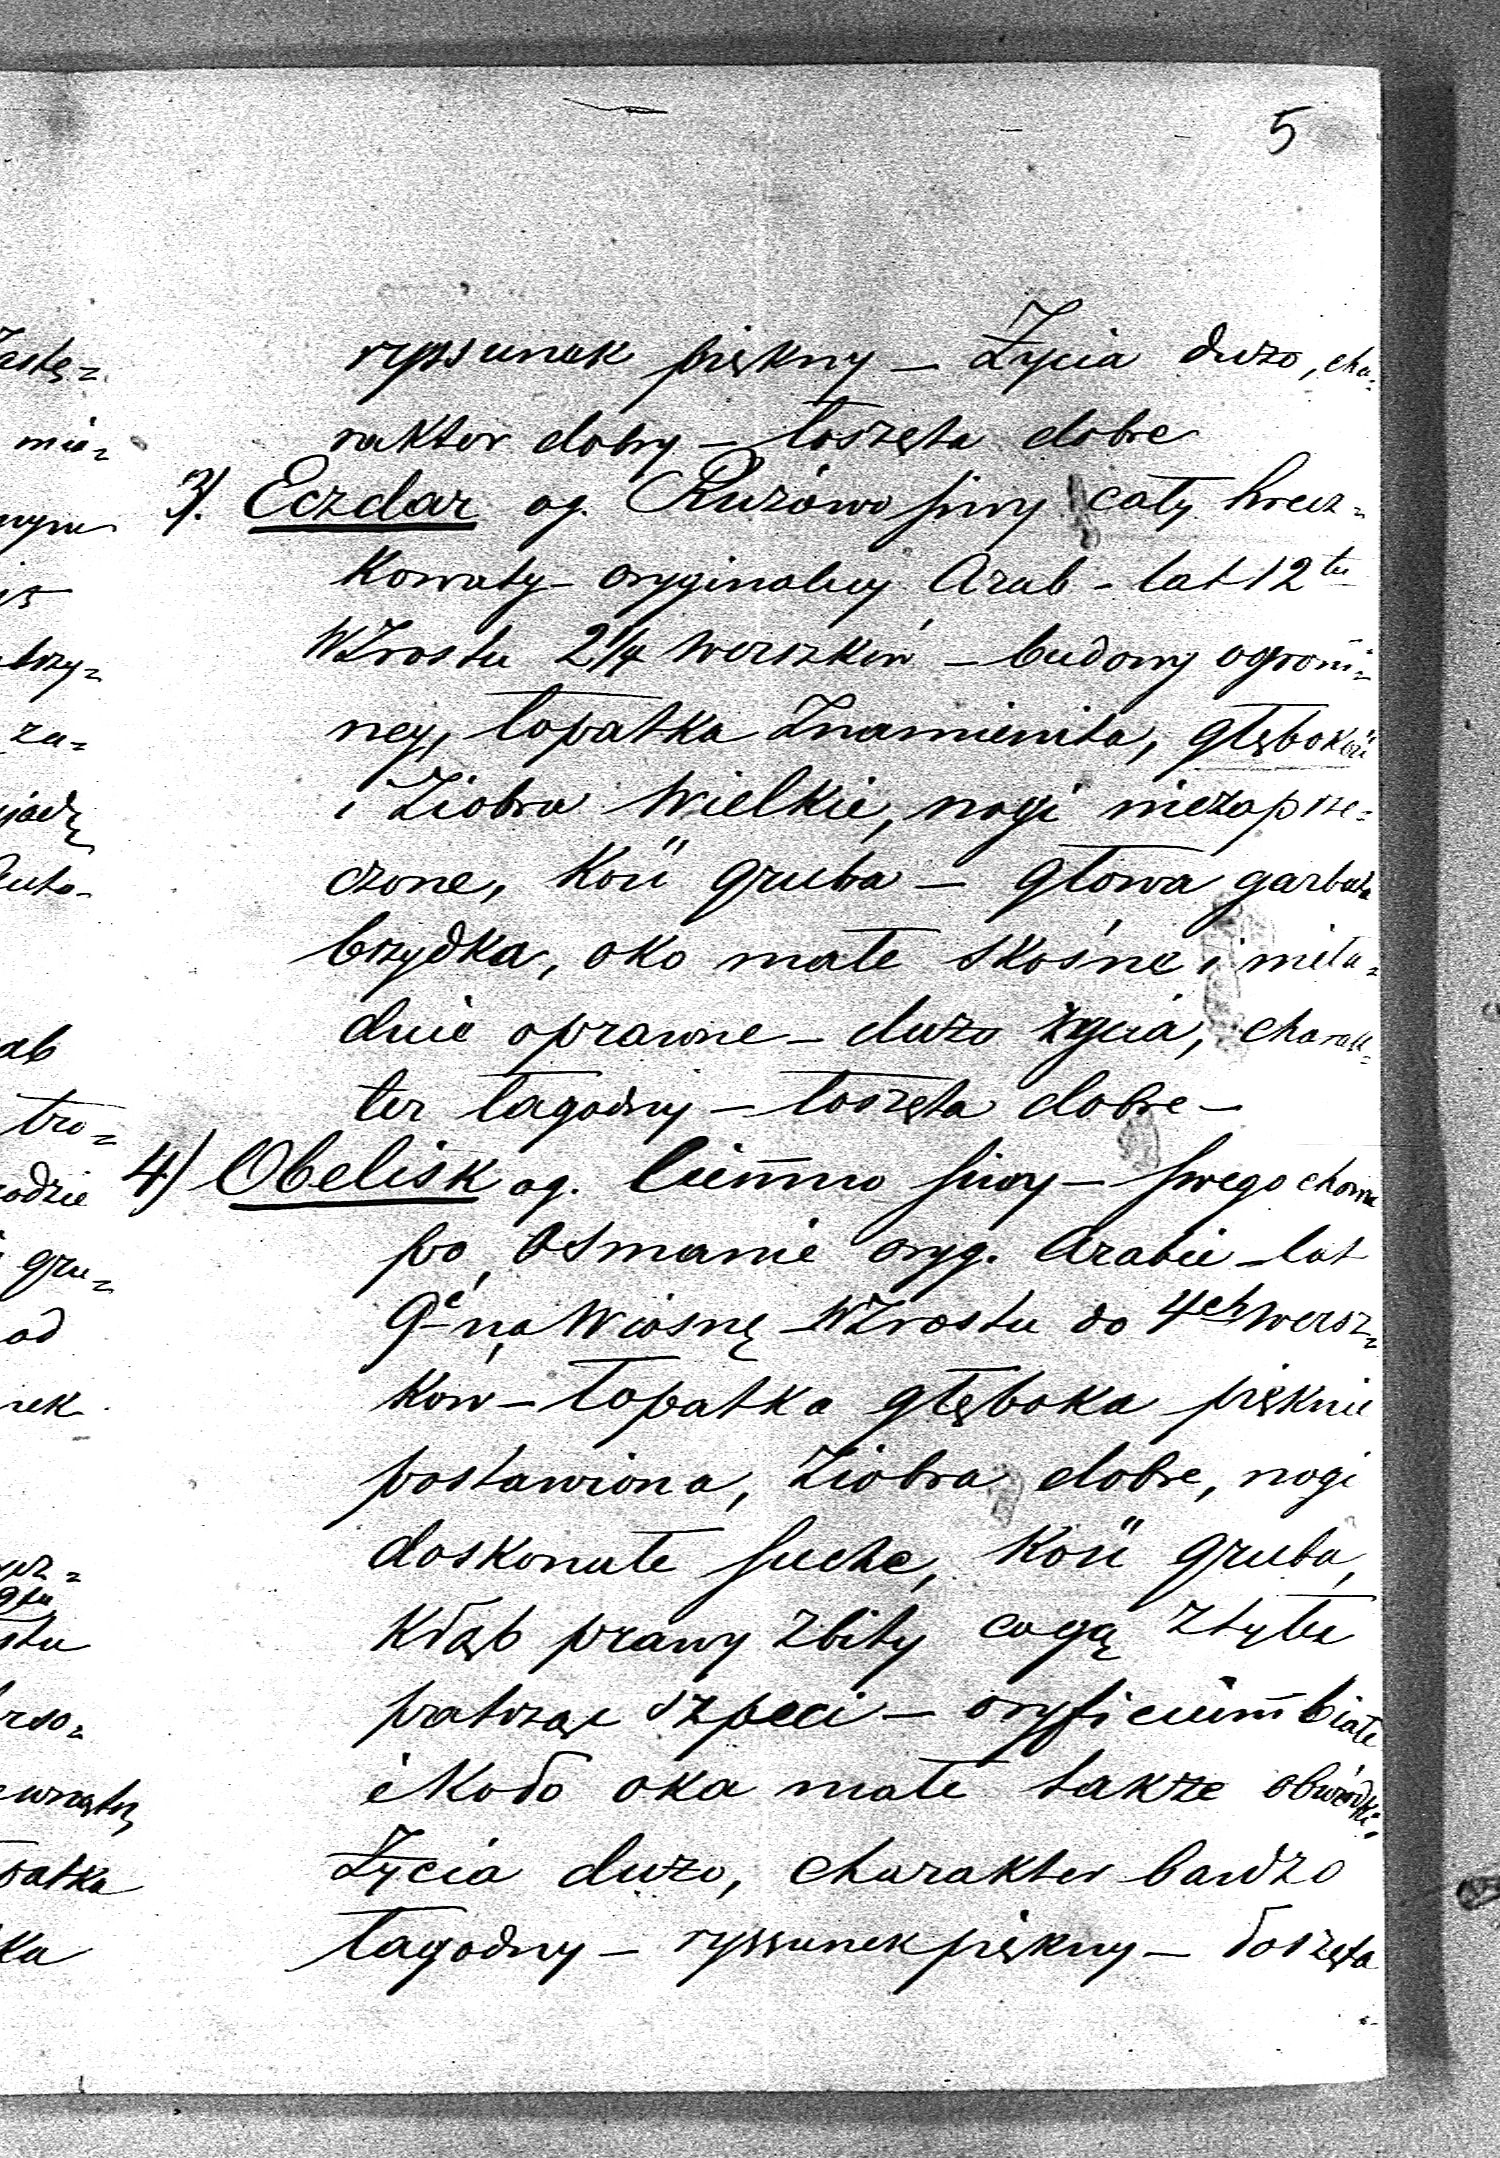 5
ryssunek piękny – Życia dużo, cha=
rakter dobry – łoszęta dobre
3). Eczdar og. Ruzówo siwy cały hrecz=
kowaty – oryginalny Arab – lat 12tu
Wzrostu 2 1/4 werszków – budowy ogrom̄=
nej, łopatka znamienita, głębokość
i Ziobra Wielkie, nogi niezaprze=
czone, Kość gruba – głowa garbata
brzydka, oko małe skośne i nieła=
dnie oprawne – dużo życia, charak=
ter łagodny – łoszęta dobre –
4) Obelisk og. Ciem̄no siwy – swego chowu
po Osmanie oryg. Arabie – lat
9ć na Wiosnę – Wzrostu do 4ch wersz=
ków – łopatka głęboka pięknie
postawiona, Ziobra dobre, nogi
doskonałe suche, Kość gruba,
Kłąb prawy zbity cogą ztyłu
patrząc szpeci – oryficium̄ białe
i koło oka małe także obwódki.
Życia dużo, charakter bardzo
łagodny – ryssunek piękny – łoszęta